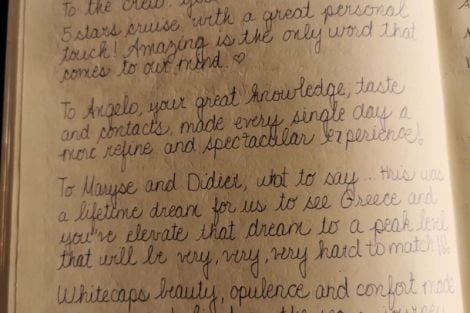 To the crew, you
5 stars cruise with a great personal
touch! Amazing is the only word that
comes to our mind. ♡
To Angelo, your great knowledge, taste
and contacts, made every single day a
more refine and spectacular experience!
To Maryse and Didier, what to say... this was
a lifetime dream for us to see Greece and
you've elevate that dream to a peak level
that will be very, very, very hard to match!!!
Whitecaps beauty, opulence and confort made
journey